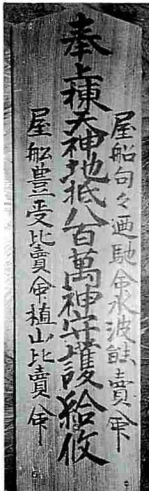 屋船句々廼馳命水波䛡賣命
奉上棟天神地抵八百萬神守護給攸
屋船豊受比賣命植山比賣命